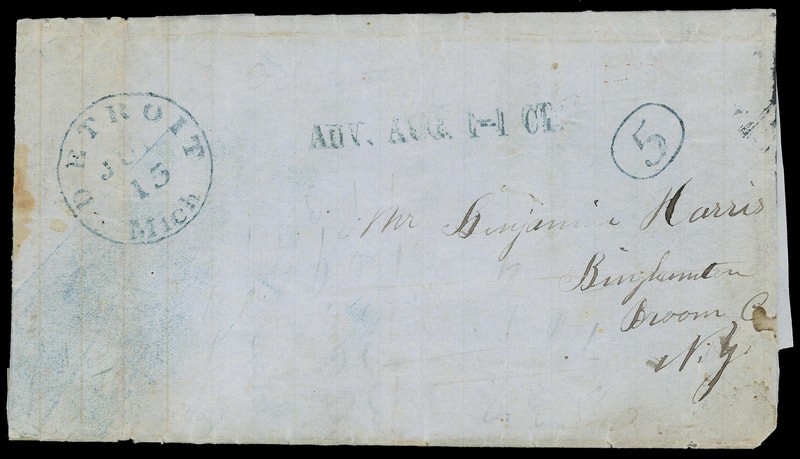 DETROIT
13
Mich
ADV. AUG. 1-1 CT.
5
Mr Benjamin Harris
Binghamton
Broom Co
N.Y.